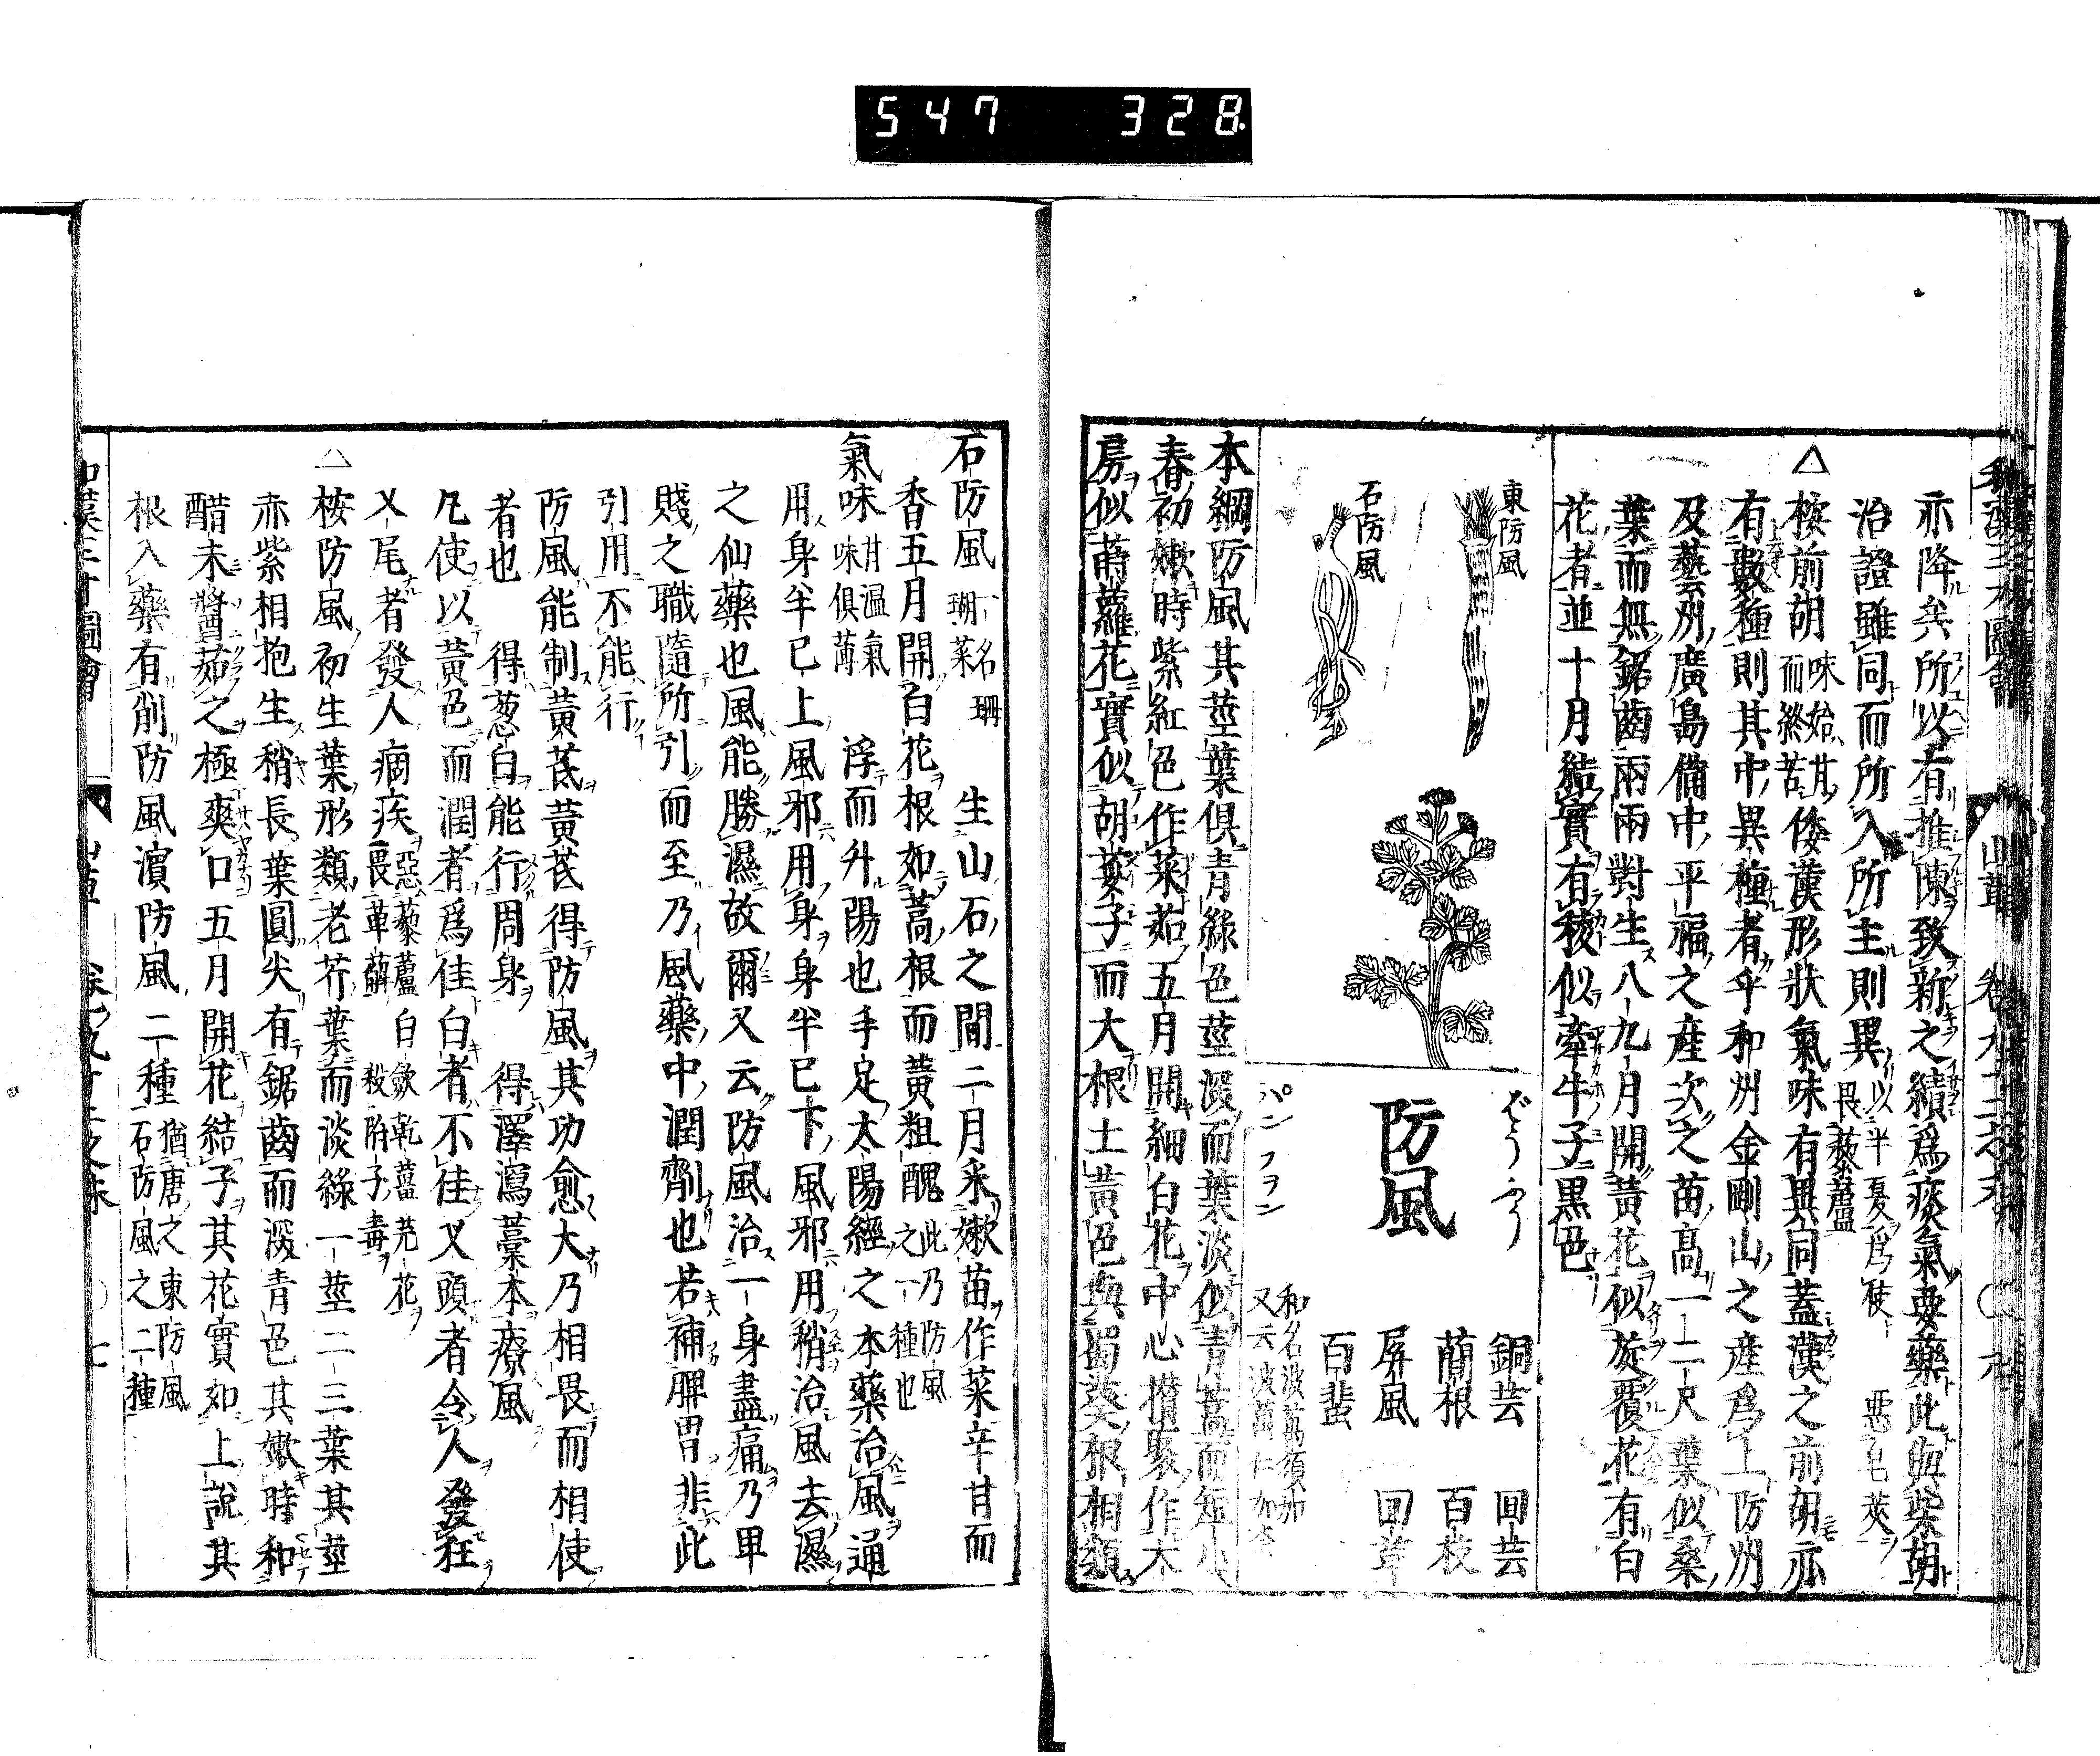 547 328
亦降矣所以有推陳致新之績爲痰氣要藥此與柴胡
治證雖同而所入所主則異 以半夏爲使 惡皂莢 畏藜蘆
△
桉前胡 味始甘 而終苦 倭漢形狀氣味有異同蓋漢之前胡亦
有數種則其中異種者乎和州金剛山之産爲上防州
及藝州廣島備中平福之産次之苗高一二尺葉似桑
葉而無鋸齒兩兩對生八九月開黃花似旋覆花有白
花者並十月結實有稜似牽牛子黒色
東防風
石防風
ぼうふう
防風
パン フヲン
銅芸 回芸
蕳根 百枝
屏風 回草
百蜚
和名波萬須加
又云波萬仁加奈
本綱防風其莖葉俱青綠色莖深而葉淡似青蒿而短小
春初嫩時紫紅色作菜茹五月開細白花中心攢聚作大
房似蒔蘿花實似胡荽子而大根土黃色與蜀葵根相類
石防風 一名 珊瑚菜 生山石之間二月采嫩苗作菜辛甘而
香五月開白花根如蒿根而黃粗醜 此乃防風 之一種也
氣味 甘温氣 味俱薄 浮而升陽也手足太陽經之本藥治風通
用身半已上風邪用身身半已下風邪用稍治風去濕
之仙藥也風能勝濕故爾又云防風治一身盡痛乃卑
賤之職隨所引而至乃風藥中潤劑也若補脾胃非此
引用不能行
防風能制黃芪黃芪得防風其功愈大乃相畏而相使
者也 得葱白能行周身 得澤瀉藁本療風
凡使以黃色而潤者爲佳白者不佳又頭者令人發狂
乂尾者發人痼疾 惡藜蘆白歛乾薑芫花 畏萆薢 殺附子毒
△
桉防風初生葉形類老芥葉而淡綠一莖二三葉其莖
赤紫相抱生稍長葉圓尖有鋸齒而深青色其嫩時和
醋未醬茹之極爽口五月開花結子其花實如上說其
根入藥有削防風濵防風二種 猶唐之東防風 石防風之二種